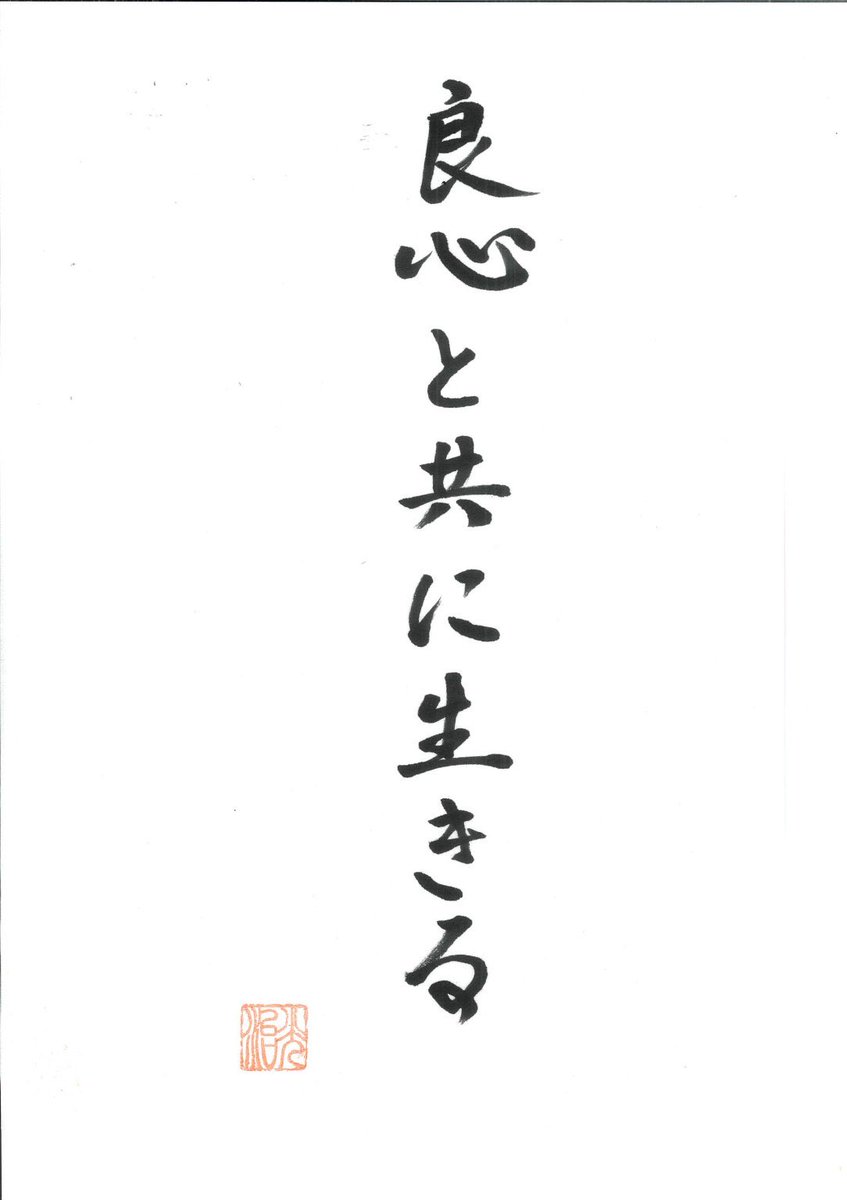 良心と共に生きる